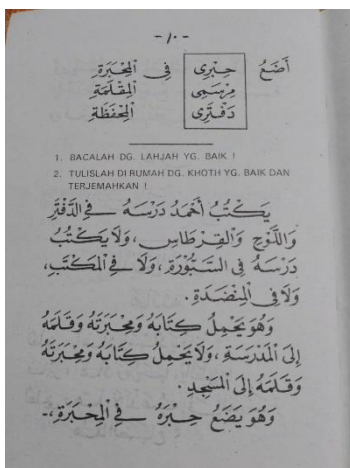 - ١٠ -
أَضَعُ حِبْرِى فِى الْمِحْبَرَةِ
مِرْسَمِى الْمِقْلَمَةِ
دَفْتَرِى الْمِحْفَظَةِ
1. BACALAH DG. LAHJAH YG. BAIK !
2. TULISLAH DI RUMAH DG. KHOTH YG. BAIK DAN
TERJEMAHKAN !
يَكْتُبُ أَحْمَدُ دَرْسَهُ فِى الدَّفْتَرِ
وَاللَّوْحِ وَالْقِرْطَاسِ، وَلَا يَكْتُبُ
دَرْسَهُ فِى السَّبُّوْرَةِ، وَلَا فِى الْمَكْتَبِ،
وَلَا فِى الْمِنْضَدَةِ.
وَهُوَ يَحْمِلُ كِتَابَهُ وَمِحْبَرَتَهُ وَقَلَمَهُ
إِلَى الْمَدْرَسَةِ، وَلَا يَحْمِلُ كِتَابَهُ وَمِحْبَرَتَهُ
وَقَلَمَهُ إِلَى الْمَسْجِدِ.
وَهُوَ يَضَعُ حِبْرَهُ فِى الْمِحْبَرَةِ،-